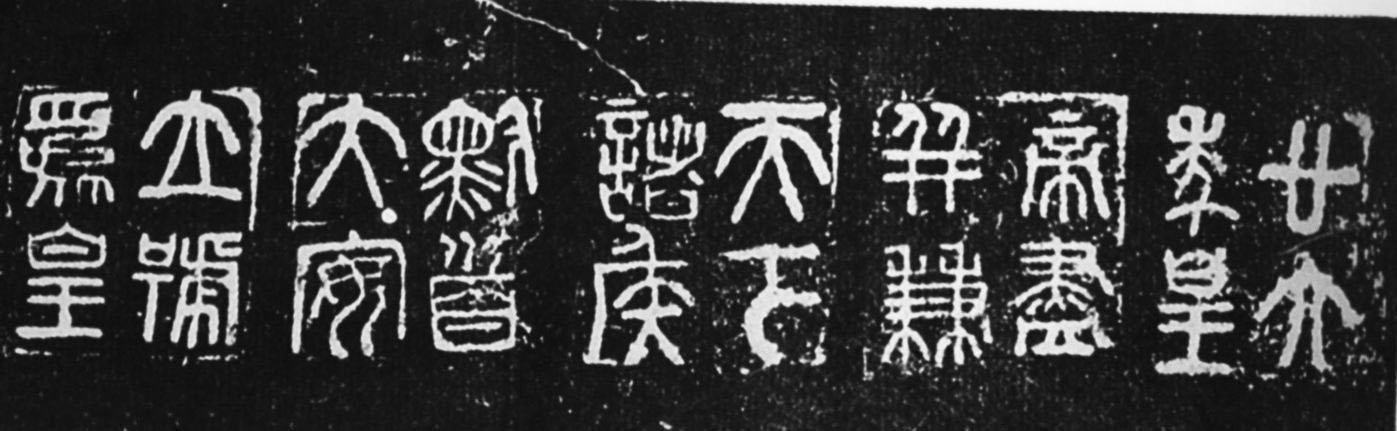 廿六
年皇
帝盡
并兼
天下
諸侯
黔首
大安
立號
為皇